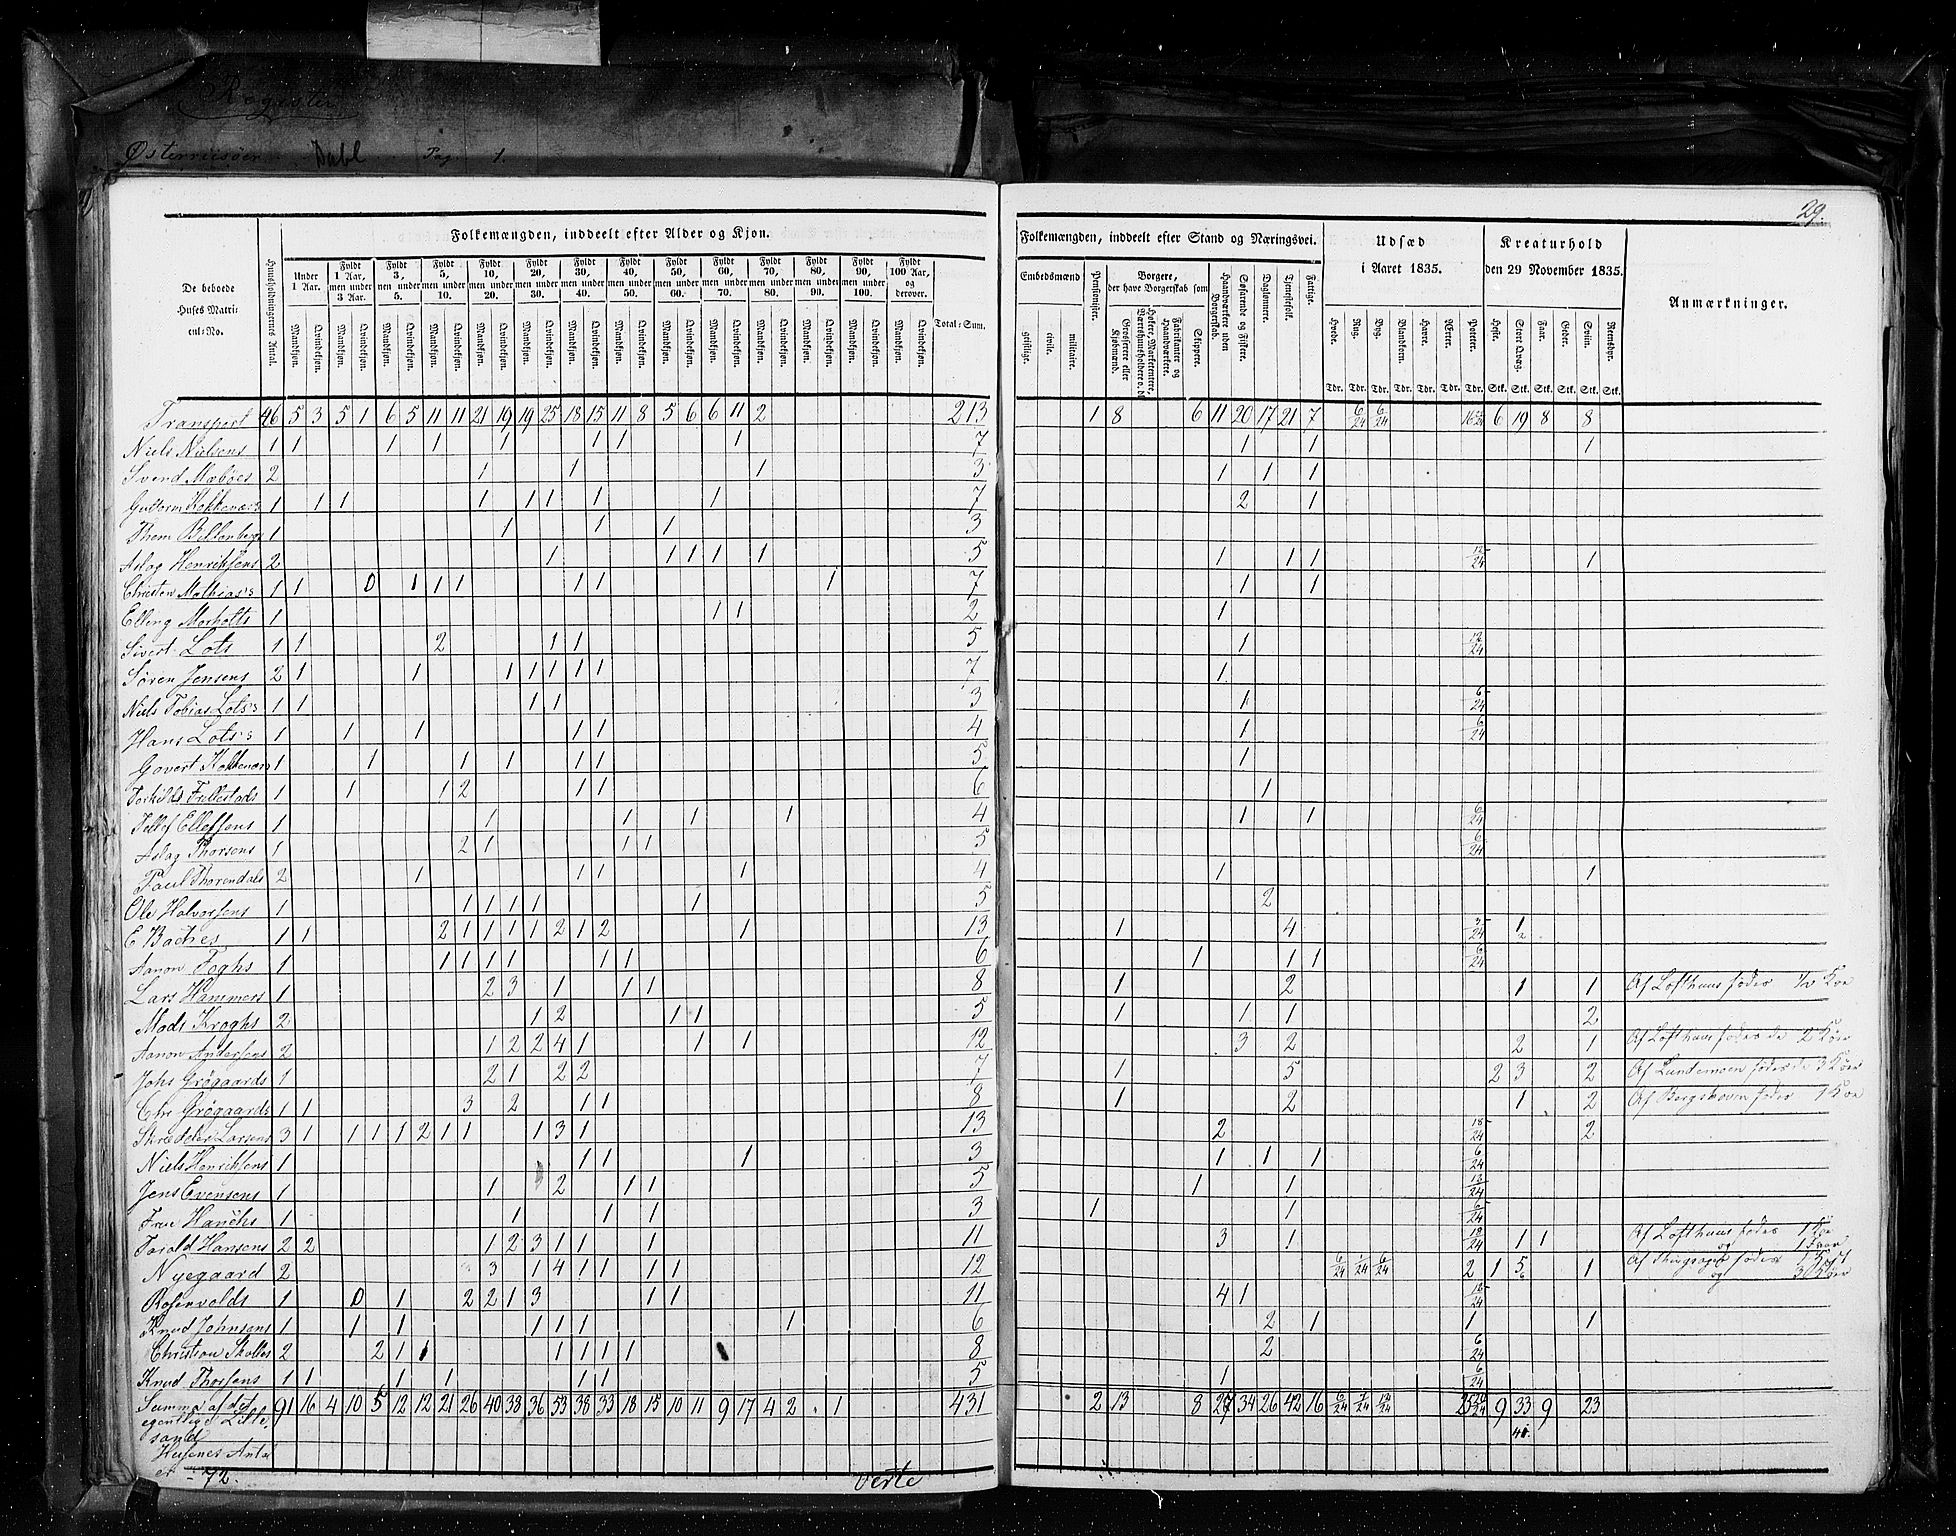 Register
Østerriisøer Dahl Pag 1.
29.
Folkemængden, inddeelt efter Alder og Kjøn.
De beboede Huses Matricul-No.
Huusholdningernes Antal.
Under 1 Aar.
Fyldt 1 Aar, men under 3 Aar.
Fyldt 3, men under 5.
Fyldt 5, men under 10.
Fyldt 10, men under 20.
Fyldt 20, men under 30.
Fyldt 30, men under 40.
Fyldt 40, men under 50.
Fyldt 50, men under 60.
Fyldt 60, men under 70.
Fyldt 70, men under 80.
Fyldt 80, men under 90.
Fyldt 90, men under 100.
Fyldt 100 Aar, og derover.
Mandkjøn. Qvindekjøn.
Total-Sum.
Folkemængden, inddeelt efter Stand og Næringsvei.
Embedsmænd
geistlige. civile. militaire.
Pensionister.
Borgere, der have Borgerskab som
Grosserere eller Kjøbmænd.
Fabrikanter og Haandværkere.
Skippere.
Haandværkere uden Borgerskab.
Søfarende og Fiskere.
Daglønnere.
Tjenestefolk.
Fattige.
Udsæd i Aaret 1835.
Hvede. Rug. Byg. Blandkorn. Havre. Erter. Poteter.
Tdr. Tdr. Tdr. Tdr. Tdr. Tdr. Tdr.
Kreaturhold den 29 November 1835.
Heste. Stort Qvæg. Faar. Geder. Sviin. Rensdyr.
Stk. Stk. Stk. Stk. Stk. Stk.
Anmærkninger.
Transport 46 5 3 5 1 6 5 11 11 21 19 19 25 18 15 11 8 5 6 6 11 2 213 1 8 6 11 20 17 21 7 6/24 6/24 6 19 8 8
Niels Nielsens 1 1 1 1 1 1 1 1 7 1 1 1
Svend Mæbøes 2 1 1 1 3 1 1 1
Guttorm 1 1 1 1 1 1 1 1 7 2 1
Them 1 1 1 1 3
Aslag Henriksens 2 1 1 1 1 1 5 1 1 1 12/24 1
Christen Mathias's 1 1 0 1 1 1 1 1 1 7 1 1
Elling Morholts 1 1 1 2 1
Sivert Lots 1 1 2 1 1 5 1 12/24
Søren Jensens 2 1 1 1 1 1 1 1 7 1
Niels Tobias Lots's 1 1 1 1 3 1 6/24
Hans Lots's 1 1 1 1 1 4 1 6/24
Govert 1 1 1 1 1 1 5 1
Torkilds 1 1 1 2 1 1 6 1
Tellef Ellefsens 1 1 1 1 1 4 1 1 6/24
Aslag Thorsens 1 2 1 1 1 5 6/24
Paul Thorendals 2 1 1 1 1 4 1 1
Ole Halvorsens 1 1 1 1 1 1 5 2
E Baches 1 1 2 1 1 1 1 2 1 2 1 13 1 4 3/24 1/2
Aanon Foghs 1 1 1 1 1 1 1 6 1 1 1 6/24
Lars Hammers 1 2 3 1 1 1 8 1 2 1 1 Af Lofthuus födes 1/2 Koe
Mads Kroghs 2 1 2 1 1 5 1 1 1 2
Aanon Andersens 2 1 2 2 4 1 1 1 12 3 2 2 1 Af Lofthuus födes de 2 Köer
Johs Grøgaards 1 2 1 2 2 7 1 5 2 3 2 Af Lundemoen födes de 3 Köer
Chr Grøgaards 1 1 3 2 1 1 8 1 2 1 2 Af Bergshaven födes 1 Koe
Skrædder Larsens 3 1 1 1 1 2 1 1 1 3 1 13 2 18/24 2
Niels Henriksens 1 1 1 1 3 1 1 1 6/24
Jens Evensens 1 1 2 1 1 5 1 1 12/24
Frue Hanchs 1 1 1 1 3 1 1 6/24
Tarald Hansens 2 2 1 2 3 1 1 1 11 3 1 18/24 1 1 Af Lofthuus födes 1 Koe og 1 Faar
Nyegaard 2 3 1 4 1 1 1 1 12 6/24 1/24 6/24 2 1 5 1 Af födes 1 og 3 Köer
Rosenvolds 1 0 1 2 2 1 3 1 1 11 4 1 18/24
Knud Johnsens 1 1 1 1 1 1 1 6 2 1 1 1
Christian Skolles 2 2 1 1 1 1 1 1 8 2 6/24
Knud Thorsens 1 1 1 1 1 1 5 1 6/24
Summa af det egentlige Lillesand 91 16 4 10 5 12 12 21 26 40 38 36 53 38 33 18 15 10 11 9 17 4 2 . 1 431 2 13 8 27 34 26 42 16 6/24 7/24 12/24 9 33 9 23
41.
Husenes Antal
et = 72.
Verte